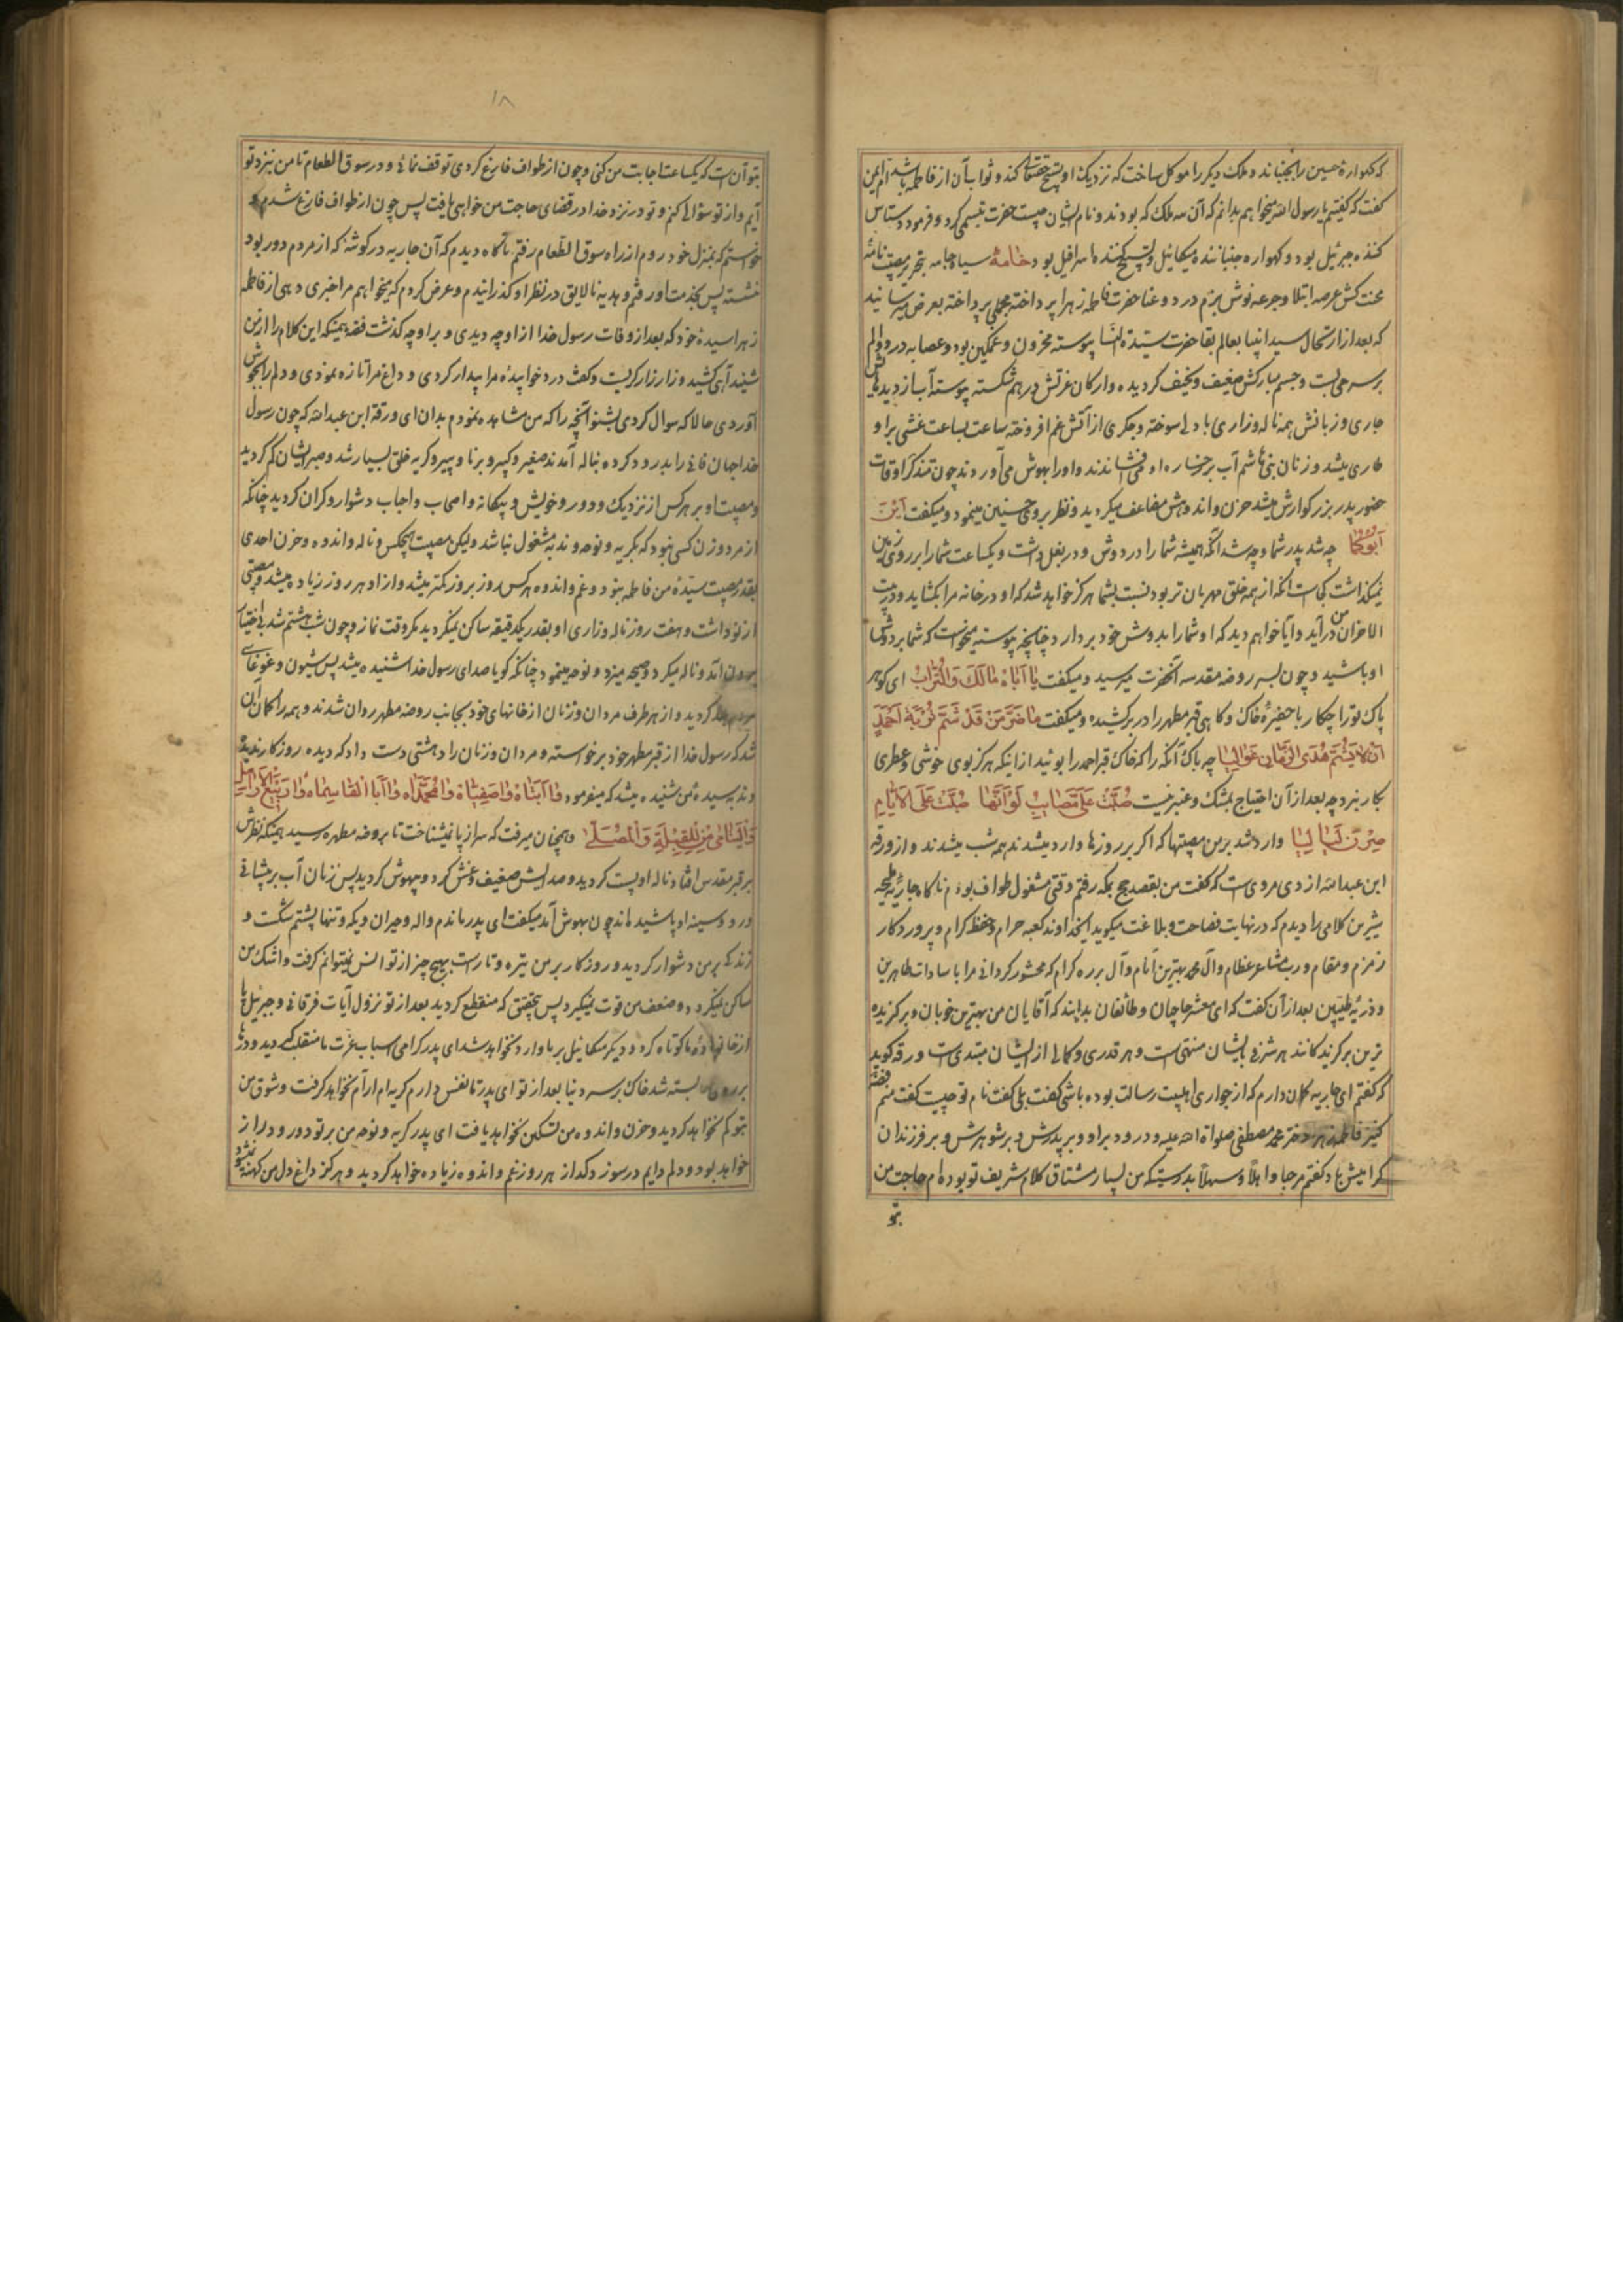 که گهواره حسین را بجنباند و ملک دیگر را موکل ساخت که نزدیک او تسبیح حقتعالی کند و ثواب آن از فاطمه باشد ام ایمن
گفت که گفتیم یا رسول الله میخواهم بدانم که آن سه ملک که بودند و نام ایشان چیست حضرت تبسمی کرد و فرمود دستاس
کننده جبرئیل بود و گهواره جنباننده میکائیل و تسبیح کننده اسرافیل بود خامهٔ سیاه جامه بتحریر مصیبت نامهٔ
محنت کش عرصه ابتلا و جرعه نوش بزم درد و عنا حضرت فاطمه زهرا پرداخته مجملی پرداخته بعرض میرساند
که بعد از ارتحال سید انبیا بعالم بقا حضرت سیدة النسا پیوسته محزون و غمگین بود و عصابه درد و الم
بر سر می بست و جسم مبارکش ضعیف و نحیف گردیده و ارکان عزتش درهم شکسته پیوسته آب از دیدهایش
جاری و زبانش همه ناله و زاری با دلی سوخته و جگری از آتش غم افروخته ساعت بساعت غشی براو
طاری میشد و زنان بنی هاشم آب بر رخساره او می افشاندند و او را بهوش می آوردند چون تذکر اوقات
حضور پدر بزرگوارش میشد حزن و اندوهش مضاعف میگردید و نظر بروی حسنین مینمود و میگفت اَیْنَ
اَبُوکُما چه شد پدر شما و چه شد آنکه همیشه شما را در دوش و در بغل داشت و یکساعت شما را بر روی زمین
نمیگذاشت کجاست آنکه از همه خلق مهربان تر بود نسبت بشما هرگز خواهد شد که او در خانه مرا بگشاید و در بیت
الاحزان من درآید و آیا خواهم دید که او شما را بدوش خود بردارد چنانچه پیوسته میخواست که شما بر دوش
او باشید و چون بسر روضه مقدسه آنحضرت میرسید و میگفت یا اَباهُ مالَكَ وَالتُّرابُ ای گوهر
پاک تو را چکار با حضیرهٔ خاک و گاهی قبر مطهر را در بر کشیده و میگفت ماضَرَّ مَنْ قَدْ شَمَّ تُرْبَةَ اَحْمَدٍ
اَنْ لایَشُمَّ مُدَی الزَّمانِ غَوالِیا چه باک آنکه را که خاک قبر احمد را بوئید از اینکه هرگز بوی خوشی و عطری
بکار نبرد چه بعد از آن احتیاج بمشک و عنبر نیست صُبَّتْ عَلَیَّ مَصائِبُ لَوْ اَنَّها صُبَّتْ عَلَی الاَیّامِ
صِرْنَ لَیالِیا وارد شد بر من مصیبتها که اگر بر روزها وارد میشدند همه شب میشدند و از ورقه
ابن عبدالله ازدی مرویست که گفت من بقصد حج بمکه رفتم وقتی مشغول طواف بودم ناگاه جاریهٔ ملیحه
شیرین کلامی را دیدم که در نهایت فصاحت و بلاغت میگوید ای خداوند کعبه حرام و حفظه کرام و پروردگار
زمزم و مقام و رب مشاعر عظام و آل محمد بهترین انام و آل برره کرام که محشور گردانی مرا با سادات طاهرین
و ذریهٔ طیبین بعد از آن گفت که ای معشر حاجان و طائفان بدانید که آقایان من بهترین خوبان و برگزیده
ترین برگزیدگانند هر شرفی بایشان منتهی است و هر قدری و کمالی از ایشان مبتدی است ورقه گوید
که گفتم ای جاریه گمان دارم که از جواری اهلبیت رسالت بوده باشی گفت بلی گفتم نام تو چیست گفت منم فضه
کنیز فاطمه زهرا دختر محمد مصطفی صلواة الله علیه و درود بر او و بر پدرش و بر شوهرش و بر فرزندان
گرامیش باد گفتم مرحبا و اهلا و سهلا بدرستیکه من بسیار مشتاق کلام شریف تو بوده ام حاجت من
بتو
۱۸
بتو آن است که یکساعت اجابت من کنی و چون از طواف فارغ گردی توقف نمائی و در سوق الطعام تا من نزد تو
آیم و از تو سؤالی کنم و تو در نزد خدا در قضای حاجت من خواهی یافت پس چون از طواف فارغ شدم و
خواستم که بمنزل خود روم از راه سوق الطعام رفتم ناگاه دیدم که آن جاریه در گوشهٔ که از مردم دور بود
نشسته پس بخدمت او رفتم و هدیه نالایق در نظر او گذرانیدم و عرض کردم که میخواهم مرا خبری دهی از فاطمه
زهرا سیدهٔ خود که بعد از وفات رسول خدا از او چه دیدی و بر او چه گذشت فضه همینکه این کلام را از من
شنید آهی کشید و زار زار گریست و گفت درد خوابیدهٔ مرا بیدار کردی و داغ مرا تازه نمودی و دلم را بجوش
آوردی حالا که سوال کردی بشنو آنچه را که من مشاهده نمودم بدان ای ورقة ابن عبدالله که چون رسول
خدا جهان فانی را بدرود کرده بناله آمدند صغیر و کبیر و برنا و پیر و گریه خلق بسیار شد و صبر ایشان کم گردید
و مصیبت او بر هرکس از نزدیک و دور و خویش و بیگانه و اصحاب و احباب دشوار و گران گردید چنانکه
از مرد و زن کسی نبود که بگریه و نوحه و ندبه مشغول نباشد ولیکن مصیبت هیچکس و ناله و اندوه و حزن احدی
بقدر مصیبت سیدهٔ من فاطمه نبود و غم و اندوه هرکس روز بروز کمتر میشد و از او هر روز زیاده میشد و مصیبتی
از نو داشت و هفت روز ناله و زاری او بقدر یکدقیقه ساکن نمیگردید مگر وقت نماز و چون شب هشتم شد بی اختیار
بیرون آمد و ناله میکرد و صیحه میزد و نوحه مینمود چنانکه گویا صدای رسول خدا شنیده میشد پس شیون و غوغای
مردم بلند گردید و از هر طرف مردان و زنان از خانهای خود بجانب روضه مطهر روان شدند و همه را گمان این
شد که رسول خدا از قبر مطهر خود برخواسته و مردان و زنان را دهشتی دست داد که دیده روزگار ندیده
و ندبه سیدهٔ من شنیده میشد که میفرمود وا اَبَتاهْ وا صَفِیّاهْ وا مُحَمَّداه وا اَبَا القاسِماه وا رَبیعَ الاَرامِلِ
وَالیَتامی مَنْ لِلْقِبْلَةِ وَالْمُصَلّی و همچنان میرفت که سر از پا نمیشناخت تا بروضه مطهره رسید همینکه نظرش
بر قبر مقدس افتاد ناله او پست گردید و صدایش ضعیف و غش کرد و بیهوش گردید پس زنان آب بر پیشانی
و رو و سینه او پاشیدهاند چون بهوش آمد میگفت ای پدر ماندم واله و حیران و یکه و تنها پشتم شکست و
زندگی بر من دشوار گردید و روزگار بر من تیره و تار است بهیچ چیز از تو انس نمیتوانم گرفت و اشک من
ساکن نمیگردد و ضعف من قوت نمیگیرد پس بتحقیق که منقطع گردید بعد از تو نزول آیات فرقانی و جبرئیل پا
از خانهاده ما کوتاه کرد و دیگر میکائیل بر ما وارد نخواهد شد ای پدر گرامی اسباب عزت ما منقلب گردید و درها
بر روی ما بسته شد خاک بر سر دنیا بعد از تو ای پدر تا نفس دارم گریه ام آرام نخواهد گرفت و شوق من
بتو کم نخواهد گردید و حزن و اندوه من تسکین نخواهد یافت ای پدر گریه و نوحه من بر تو دور و دراز
خواهد بود و دلم دایم در سوز و گداز هر روز غم و اندوه زیاده خواهد گردید و هرگز داغ دل من کهنه نشود